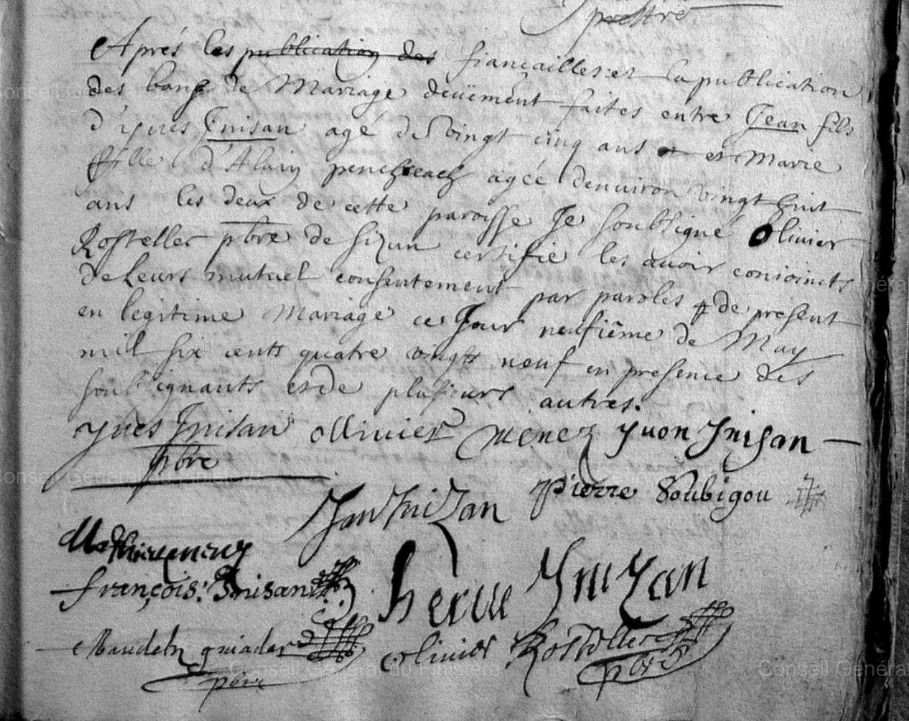 prestre
Aprés les publication des fiancailles et la publication
des bans de Mariage deuëment faites entre Jean fils
d'yves Inisan agé de vingt cinq ans et Marie
fille d'Alain penchreach agée denuiron vingt huit
ans les deux de cette paroisse Je soubsigné Olivier
Rostellec pbre de sizun certifie les auoir conioincts
de Leurs mutuel consentement par paroles de présent
en legitime Mariage ce Jour neufiême de May
mil six cents quatre vingts neuf en presence des
soubsignants et de plusieurs autres.
yves Inisan ollivier menez yvon Inisan
pbre
Jan Inizan pierre Soubigou
françois Inisan herve Inizan
Baudeln guiader olivier Rostellec
pbre pbre
Conseil Général